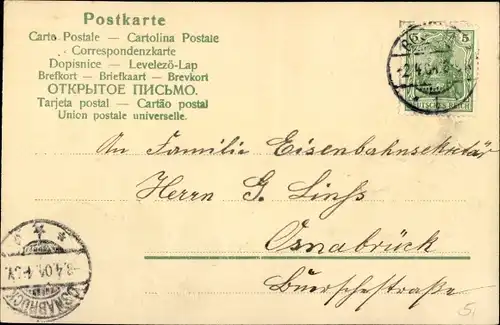 Postkarte
Carte Postale — Cartolina Postale
Correspondenzkarte
Dopisnice — Levelező-Lap
Brefkort — Briefkaart — Brevkort
ОТКРЫТОЕ ПИСЬМО.
Tarjeta postal — Cartão postal
Union postale universelle.
5
DEUTSCHES REICH
An Familie Eisenbahnsekretär
Herrn G.
Osnabrück
OSNABRÜCK
5,